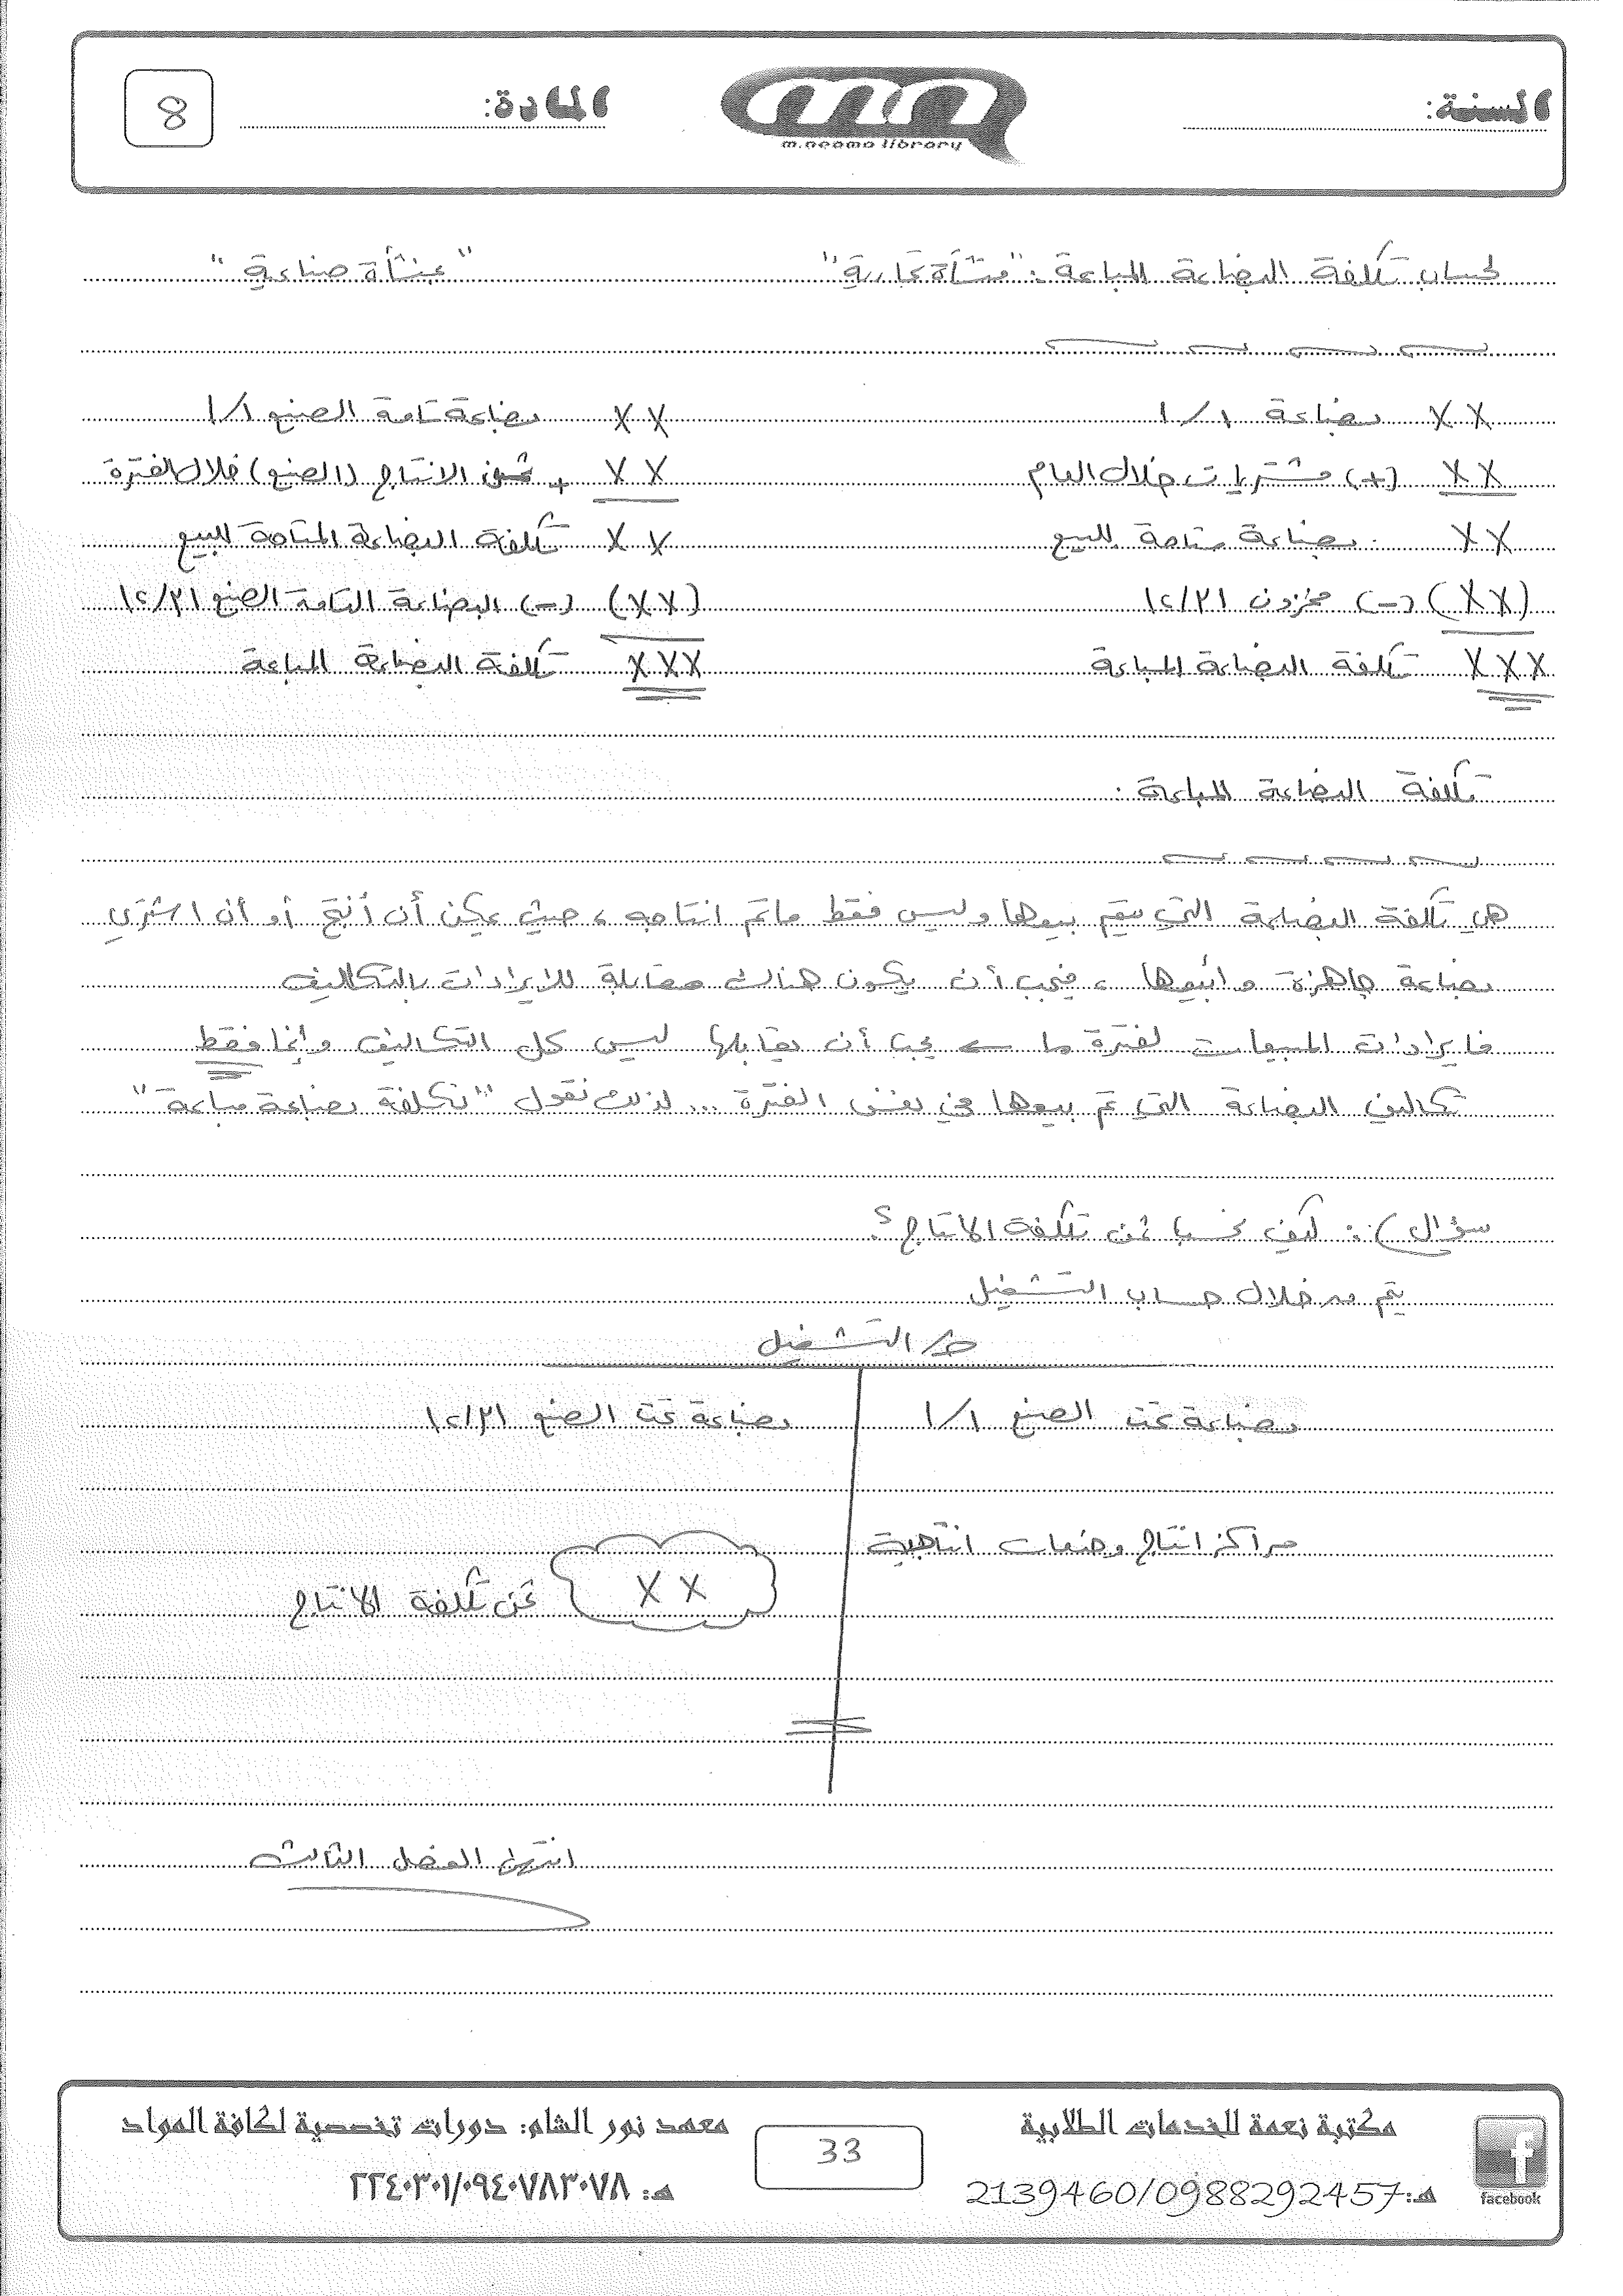 السنة:
m.neama library
المادة:
8
لحساب تكلفة البضاعة المباعة : "منشأة تجارية" "منشأة صناعية"
XX بضاعة ١/١ XX بضاعة تامة الصنع ١/١
XX (+) مشتريات خلال العام XX + ثمن الانتاج (الصنع) خلال الفترة
XX بضاعة متاحة للبيع XX تكلفة البضاعة المتاحة للبيع
(XX) (-) مخزون ١٢/٣١ (XX) (-) البضاعة التامة الصنع ١٢/٣١
XXX تكلفة البضاعة المباعة XXX تكلفة البضاعة المباعة
تكلفة البضاعة المباعة :
هي تكلفة البضاعة التي يتم بيعها وليس فقط ماتم انتاجه ، حيث يمكن أن أنتج أو أن اشتري
بضاعة جاهزة وابيعها ، فيجب أن يكون هنالك مقابلة للايرادات بالتكاليف
فايرادات المبيعات لفترة ما ← يجب أن يقابلها ليس كل التكاليف وإنما فقط
تكاليف البضاعة التي تم بيعها في نفس الفترة ... لذلك نقول "تكلفة بضاعة مباعة"
سؤال) : كيف نحسب ثمن تكلفة الانتاج ؟
يتم من خلال حساب التشغيل
حـ/ التشغيل
بضاعة تحت الصنع ١/١ بضاعة تحت الصنع ١٢/٣١
مراكز انتاج وخدمات انتاجية
XX ثمن تكلفة الانتاج
انتهى الفصل الثالث
مكتبة نعمة للخدمات الطلابية
هـ:2139460/0988292457
facebook
33
معهد نور الشام: دورات تخصصية لكافة المواد
هـ: ٢٢٤٠٣٠١/٠٩٤٠٧٨٣٠٧٨